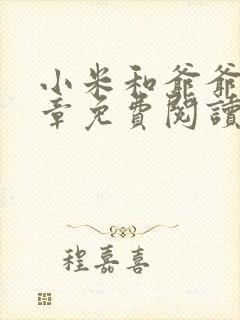 小米和爺爺
章免費閱讀
程嘉喜